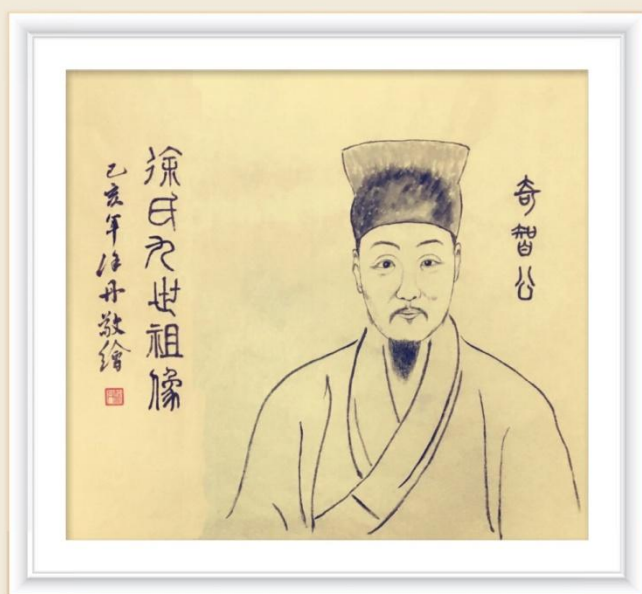 奇智公
徐氏九世祖像
乙亥年徐丹敬繪